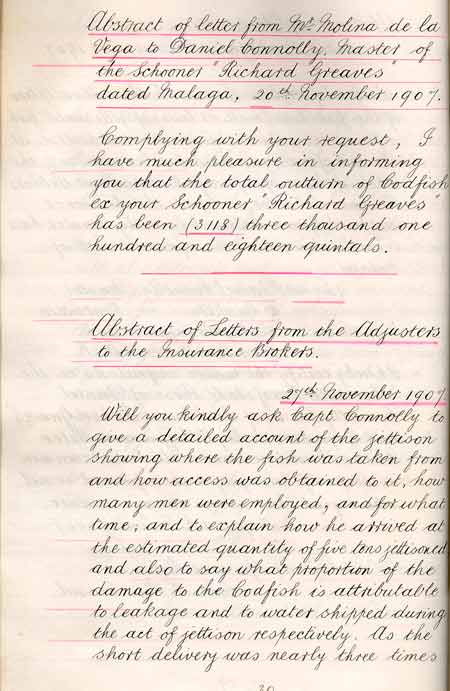 Abstract of letter from Mr. Molina de la
Vega to Daniel Connolly, Master of
the Schooner "Richard Greaves"
dated Malaga, 20th November 1907.
Complying with your request, I
have much pleasure in informing
you that the total outturn of Codfish
ex your Schooner "Richard Greaves"
has been (3118) three thousand one
hundred and eighteen quintals.
Abstract of Letters from the Adjusters
to the Insurance Brokers.
27th November 1907.
Will you kindly ask Capt. Connolly to
give a detailed account of the jettison
showing where the fish was taken from
and how access was obtained to it, how
many men were employed, and for what
time, and to explain how he arrived at
the estimated quantity of five tons jettisoned
and also to say what proportion of the
damage to the Codfish is attributable
to leakage and to water shipped during
the act of jettison respectively. As the
short delivery was nearly three times